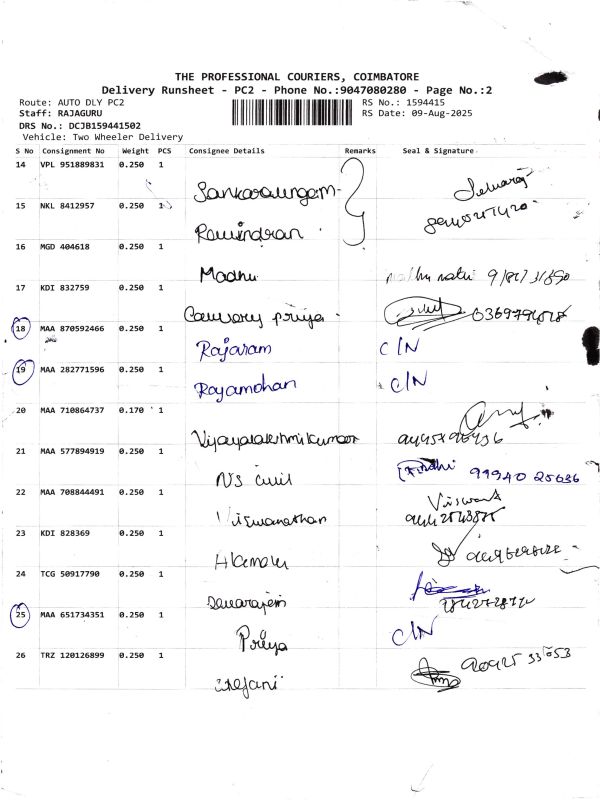 THE PROFESSIONAL COURIERS, COIMBATORE
Delivery Runsheet - PC2 - Phone No.:9047080280 - Page No.:2
Route: AUTO DLY PC2 RS No.: 1594415
Staff: RAJAGURU RS Date: 09-Aug-2025
DRS No.: DCJB159441502
Vehicle: Two Wheeler Delivery
S No Consignment No Weight PCS Consignee Details Remarks Seal & Signature
14 VPL 951889831 0.250 1
15 NKL 8412957 0.250 1
Rawindran
16 MGD 404618 0.250 1
Madhu
17 KDI 832759 0.250 1
Cauvery priya
18 MAA 870592466 0.250 1
Rajaram C/N
19 MAA 282771596 0.250 1
Rajamohan C/N
20 MAA 710864737 0.170 1
Vijayalakshmikumar
21 MAA 577894919 0.250 1
NS civil 99940 25636
22 MAA 708844491 0.250 1
Viswanathan Viswant
23 KDI 828369 0.250 1
24 TCG 50917790 0.250 1
25 MAA 651734351 0.250 1
Priya C/N
26 TRZ 120126899 0.250 1